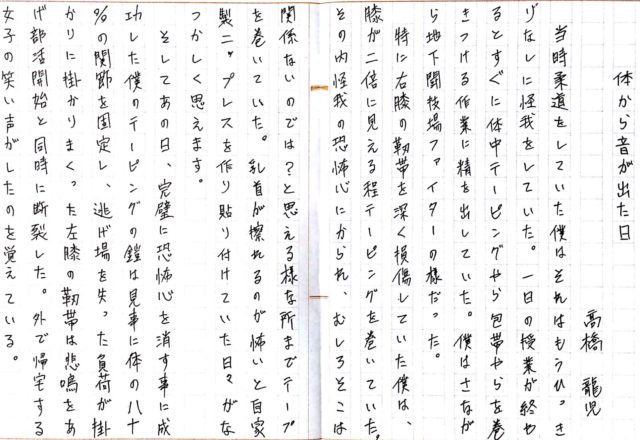 体から音が出た日
高橋 龍児
当時柔道をしていた僕はそれはもうひっき
りなしに怪我をしていた。一日の授業が終や
るとすぐに体中テーピングやら包帯やらを巻
きつける作業に精を出していた。僕はさなが
ら地下闘技場ファイターの様だった。
特に右膝の靭帯を深く損傷していた僕は、
膝が二倍に見える程テーピングを巻いていた。
その内怪我の恐怖心にかられ、むしろそこは
関係ないのでは？と思える様な所までテープ
を巻いていた。乳首が擦れるのが怖いと自家
製ニップレスを作り貼り付けていた日々がな
つかしく思えます。
そしてあの日、完璧に恐怖心を消す事に成
功した僕のテーピングの鎧は見事に体の八十
%の関節を固定し、逃げ場を失った負荷が掛
かりに掛かりまくった左膝の靭帯は悲鳴をあ
げ部活開始と同時に断裂した。外で帰宅する
女子の笑い声がしたのを覚えている。